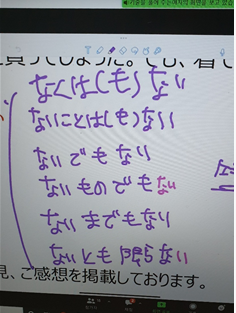 なくは(も)ない
ないことは(も)ない
ないでもない
ないものでもない
ないまでもない
ないとも限らない
見、ご感想を掲載しております。